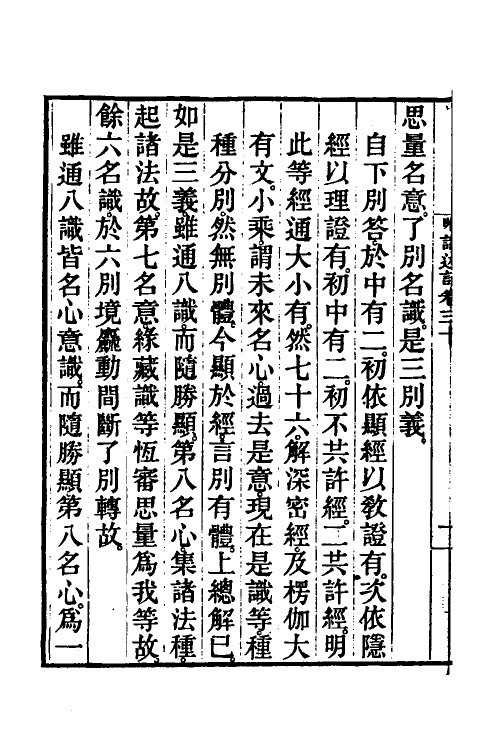 思量名意。了別名識。是三別義。
自下別答。於中有二。初依顯經以敎證有。次依隱
經以理證有。初中有二。初不共許經。二共許經。明
此等經通大小有。然七十六。解深密經。及楞伽大
有文。小乘。謂未來名心。過去是意。現在是識等。種
種分別。然無別體。今顯於經。言別有體。上總解已。
如是三義雖通八識。而隨勝顯。第八名心。集諸法種。
起諸法故。第七名意。緣藏識等恆審思量爲我等故。
餘六名識。於六別境麤動間斷了別轉故。
雖通八識皆名心意識。而隨勝顯第八名心。爲一